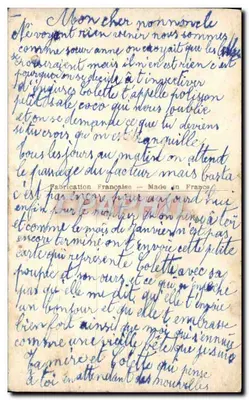 Mon cher
Ne voyant rien venir nous sommes
comme sœur anne on croyait que les
mais il n'en est rien c'est
pourquoi on se décide à t'
d'injures Colette t'appelle polisson
petit sale coco qui nous oublie
et on se demande ce que tu deviens
si tu crois qu'on est tranquille
tous les jours au matin on attend
le passage du facteur mais basta
Fabrication Française - Made in France
c'est pas
enfin pour te on pense à toi
et comme le mois de Janvier n'est pas
encore terminé on t'envoie cette petite
carte qui représente Colette avec sa
poupée et son ours, et ce que
pas qu'elle me dit, qu'elle t'envoie
un bonjour et qu'elle t'embrasse
bien fort ainsi que moi qui s'ennuie
comme une vieille bête que je suis
Ta mère et Colette qui pense
à toi en attendant des nouvelles